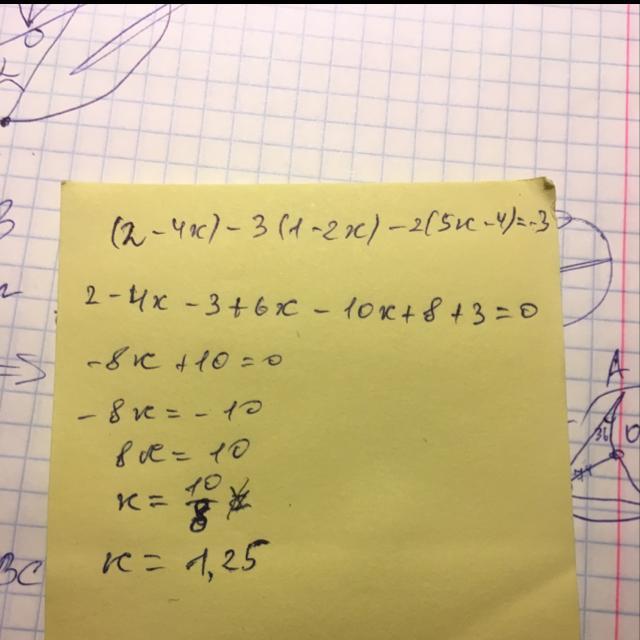 (2-4x)-3(1-2x)-2(5x-4)=-3
2-4x-3+6x-10x+8+3=0
-8x+10=0
-8x=-10
8x=10
x=10/8
x=1,25
A